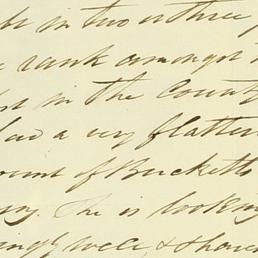 in two or three
rank amongst
in the County
had a very flatter
of Bucketts
She is looking
well, & thou